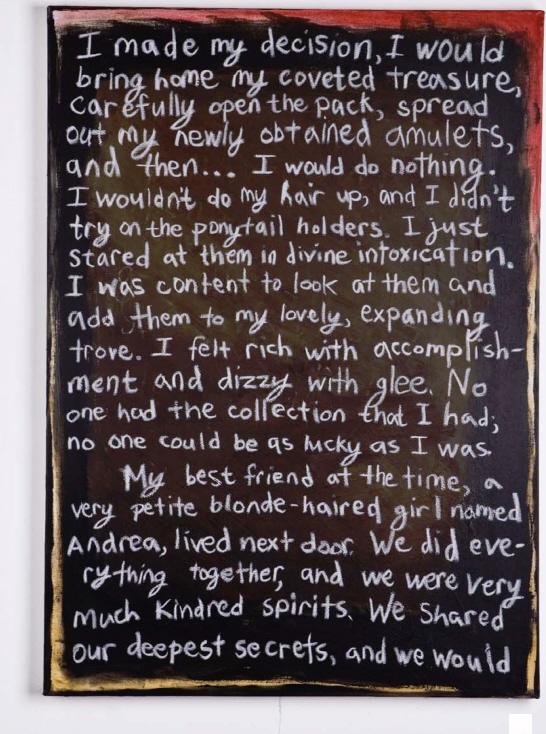 I made my decision, I would
bring home my coveted treasure,
carefully open the pack, spread
out my newly obtained amulets,
and then... I would do nothing.
I wouldn't do my hair up, and I didn't
try on the ponytail holders. I just
stared at them in divine intoxication.
I was content to look at them and
add them to my lovely, expanding
trove. I felt rich with accomplish-
ment and dizzy with glee. No
one had the collection that I had;
no one could be as lucky as I was.
My best friend at the time, a
very petite blonde-haired girl named
Andrea, lived next door. We did eve-
rything together, and we were very
much kindred spirits. We shared
our deepest secrets, and we would